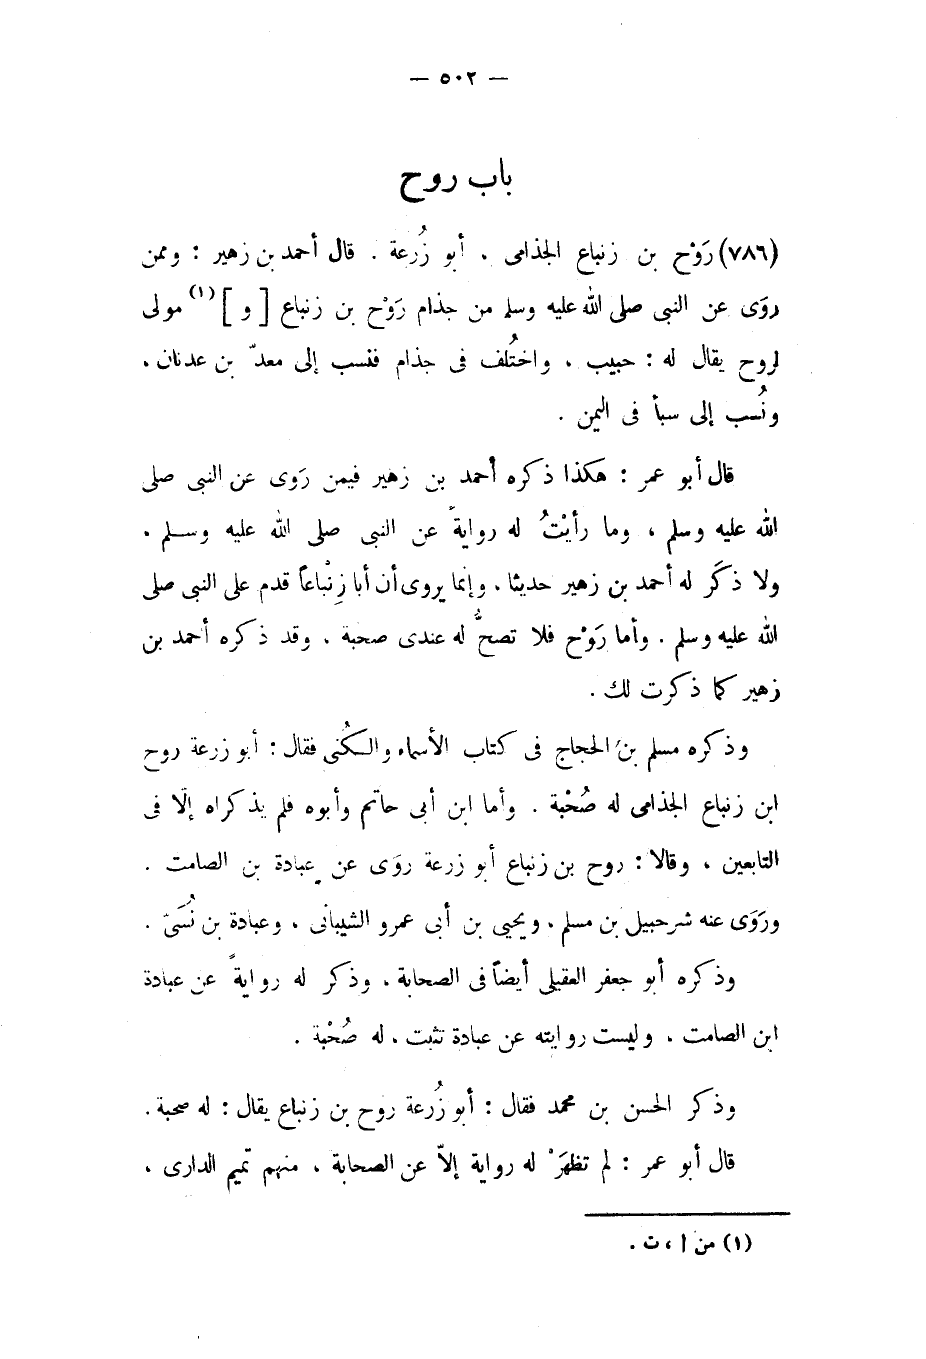 — ٥٠٢ —
باب روح
(٧٨٦) رَوْح بن زنباع الجذامى ، أبو زُرعة . قال أحمد بن زهير : وممن
روَى عن النبى صلى الله عليه وسلم من جذام رَوْح بن زنباع [ و ] (١) مولى
لروح يقال له : حبيب ، واختُلف فى جذام فنسب إلى معدّ بن عدنان ،
ونُسب إلى سبأ فى اليمن .
قال أبو عمر : هكذا ذكره أحمد بن زهير فيمن رَوى عن النبى صلى
الله عليه وسلم ، وما رأيْتُ له روايةً عن النبى صلى الله عليه وسلم ،
ولا ذكَر له أحمد بن زهير حديثا ، وإنما يروى أن أبا زِنْباعاً قدم على النبى صلى
الله عليه وسلم . وأما رَوْح فلا تصحُّ له عندى صحبة ، وقد ذكره أحمد بن
زهير كما ذكرت لك .
وذكره مسلم بن الحجاج فى كتاب الأسماء والكُنى فقال : أبو زرعة روح
ابن زنباع الجذامى له صُحْبة . وأما ابن أبى حاتم وأبوه فلم يذكراه إلّا فى
التابعين ، وقالا : روح بن زنباع أبو زرعة روَى عن عبادة بن الصامت .
ورَوَى عنه شرحبيل بن مسلم ، ويحيى بن أبى عمرو الشيبانى ، وعبادة بن نُسَىّ .
وذكره أبو جعفر العقيلى أيضاً فى الصحابة ، وذكر له روايةً عن عبادة
ابن الصامت ، وليست روايته عن عبادة تثبت ، له صُحْبة .
وذكر الحسن بن محمد فقال : أبو زُرعة روح بن زنباع يقال : له صحبة .
قال أبو عمر : لم تظهَرْ له رواية إلاّ عن الصحابة ، منهم تميم الدارى ،
(١) من ا ، ت .